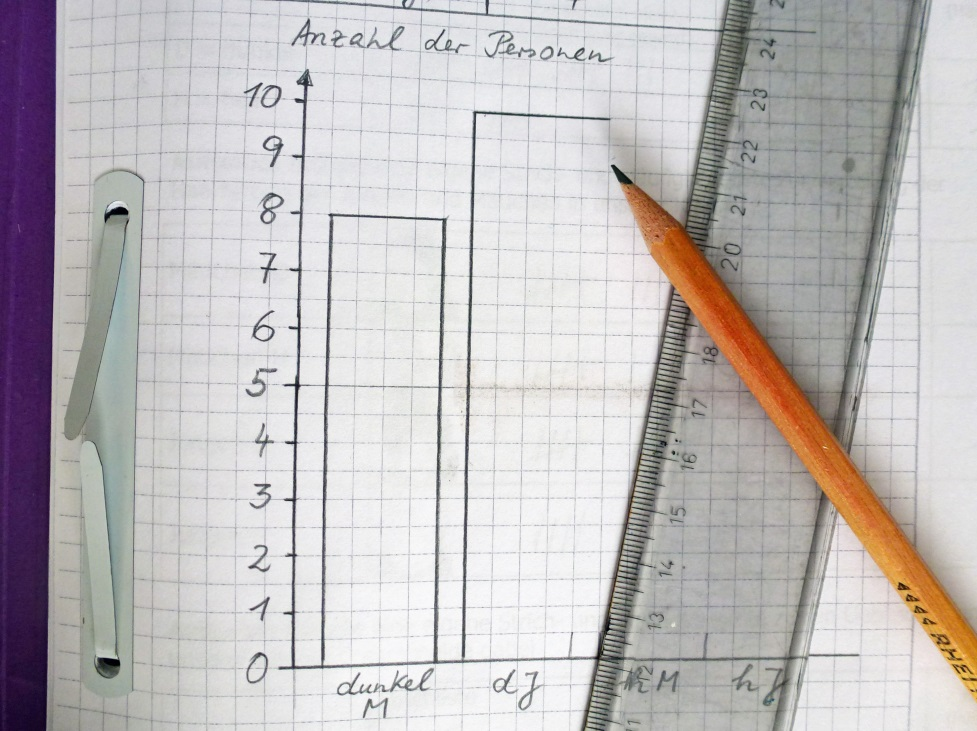 Anzahl der Personen
10
9
8
7
6
5
4
3
2
1
0
dunkel dJ hM hJ
M
24
23
22
21
20
18
17
16
15
14
13
12
11
4444 RHEI